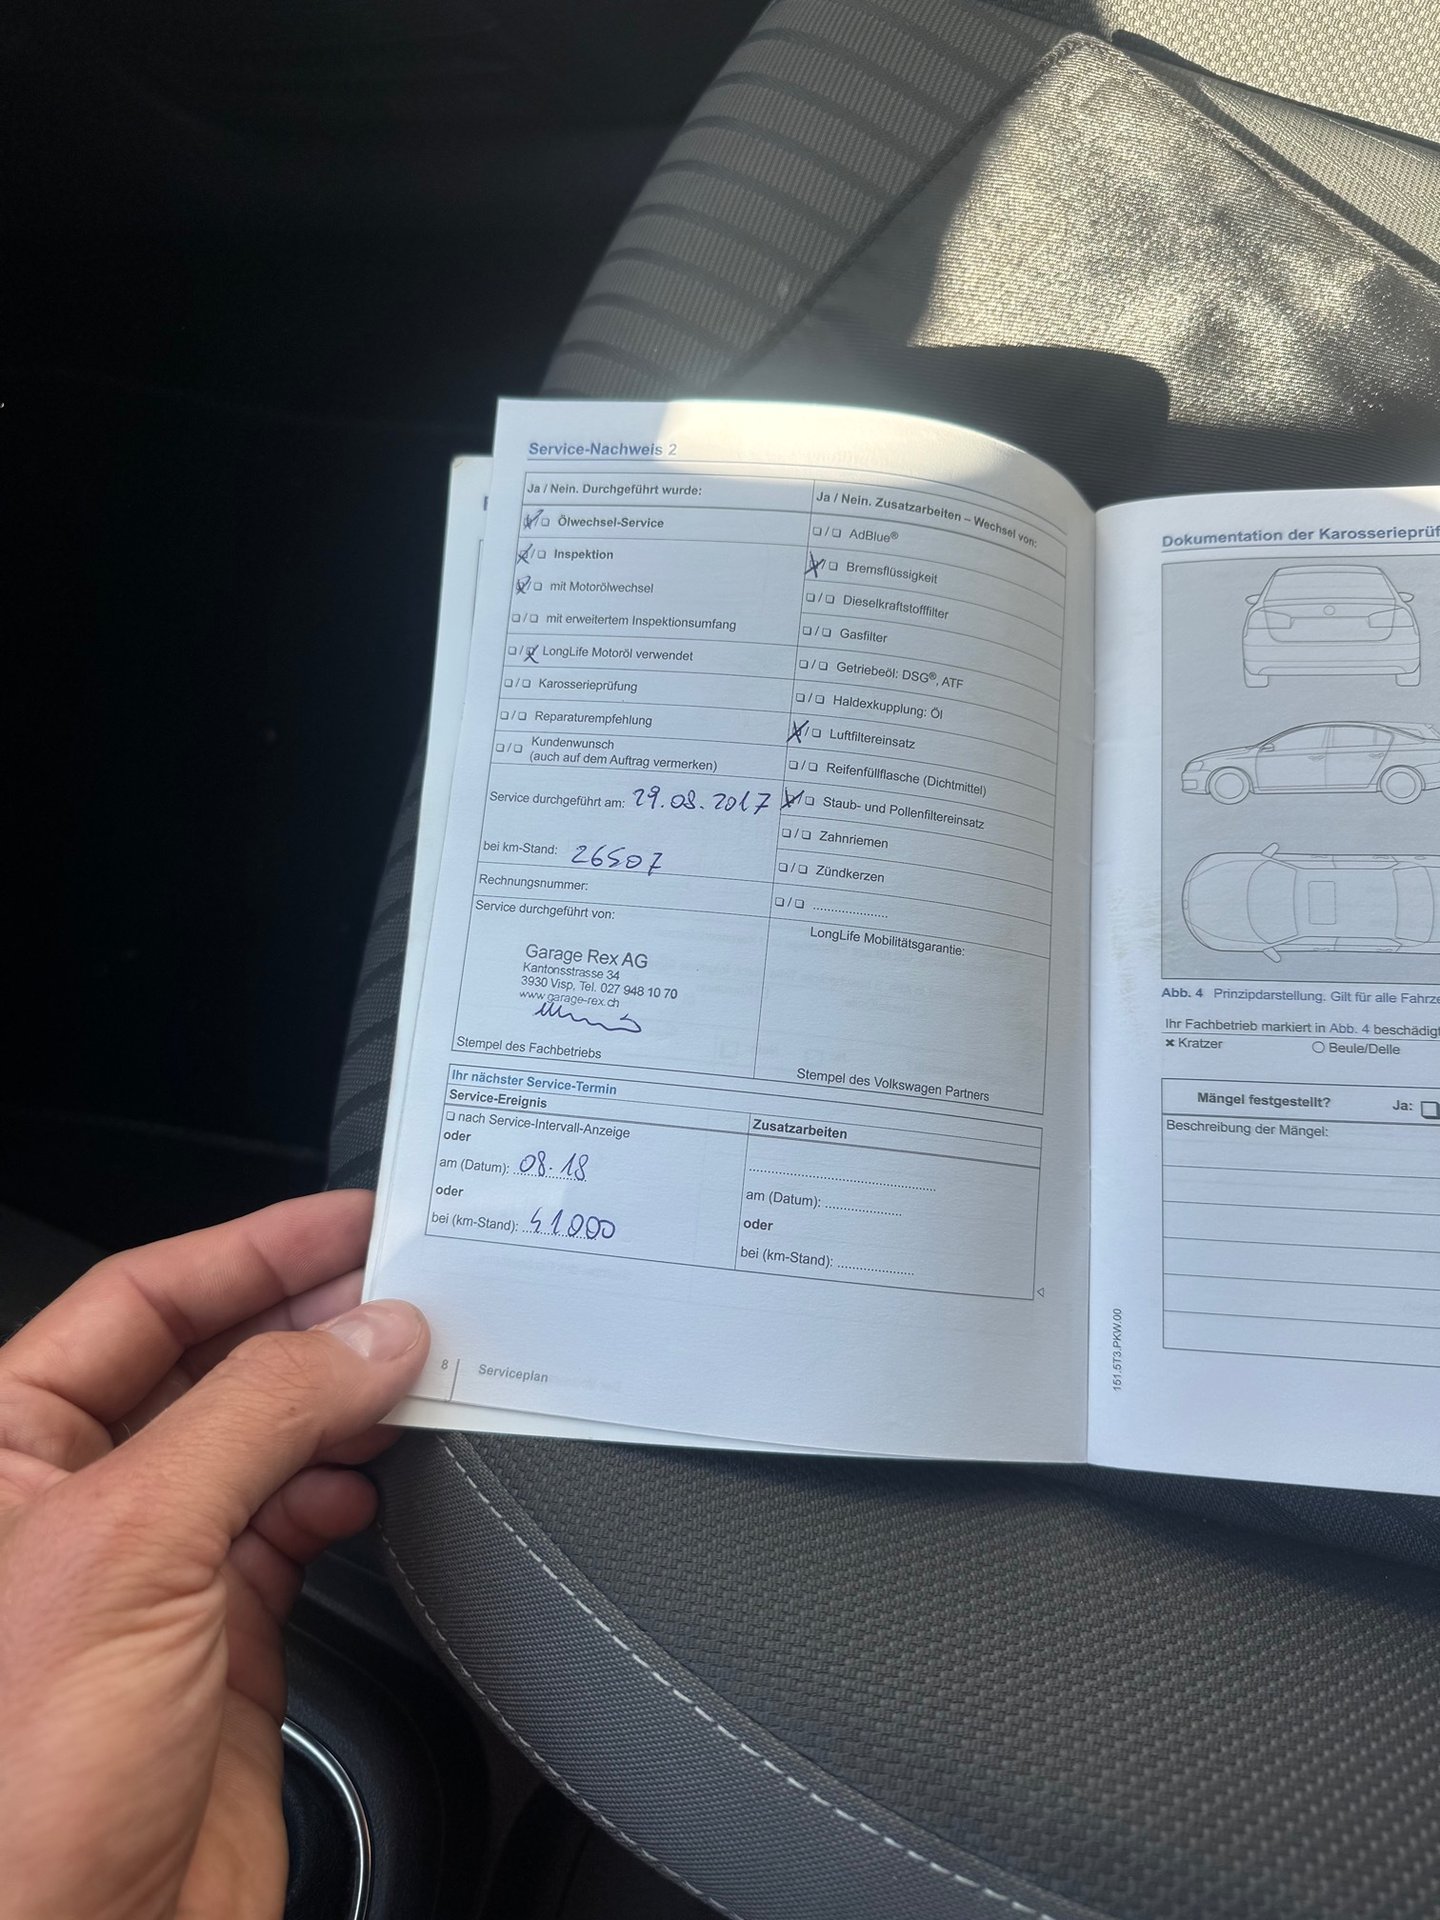 Service-Nachweis 2
Ja / Nein. Durchgeführt wurde:
❑/❑ Ölwechsel-Service
❑/❑ Inspektion
❑/❑ mit Motorölwechsel
❑/❑ mit erweitertem Inspektionsumfang
❑/❑ LongLife Motoröl verwendet
❑/❑ Karosserieprüfung
❑/❑ Reparaturempfehlung
❑/❑ Kundenwunsch
(auch auf dem Auftrag vermerken)
Service durchgeführt am: 29.08.2017
bei km-Stand: 26507
Rechnungsnummer:
Service durchgeführt von:
Garage Rex AG
Kantonsstrasse 34
3930 Visp, Tel. 027 948 10 70
www.garage-rex.ch
Stempel des Fachbetriebs
Ja / Nein. Zusatzarbeiten – Wechsel von:
❑/❑ AdBlue®
❑/❑ Bremsflüssigkeit
❑/❑ Dieselkraftstofffilter
❑/❑ Gasfilter
❑/❑ Getriebeöl: DSG®, ATF
❑/❑ Haldexkupplung: Öl
❑/❑ Luftfiltereinsatz
❑/❑ Reifenfüllflasche (Dichtmittel)
❑/❑ Staub- und Pollenfiltereinsatz
❑/❑ Zahnriemen
❑/❑ Zündkerzen
❑/❑ ......................
LongLife Mobilitätsgarantie:
Stempel des Volkswagen Partners
Ihr nächster Service-Termin
Service-Ereignis
❑ nach Service-Intervall-Anzeige
oder
am (Datum): 08.18
oder
bei (km-Stand): 41000
Zusatzarbeiten
am (Datum): ......................
oder
bei (km-Stand): ......................
8 | Serviceplan
Dokumentation der Karosserieprüf
Abb. 4 Prinzipdarstellung. Gilt für alle Fahrze
Ihr Fachbetrieb markiert in Abb. 4 beschädigt
✖ Kratzer ○ Beule/Delle
Mängel festgestellt? Ja: ❑
Beschreibung der Mängel:
151.5T3.PKW.00